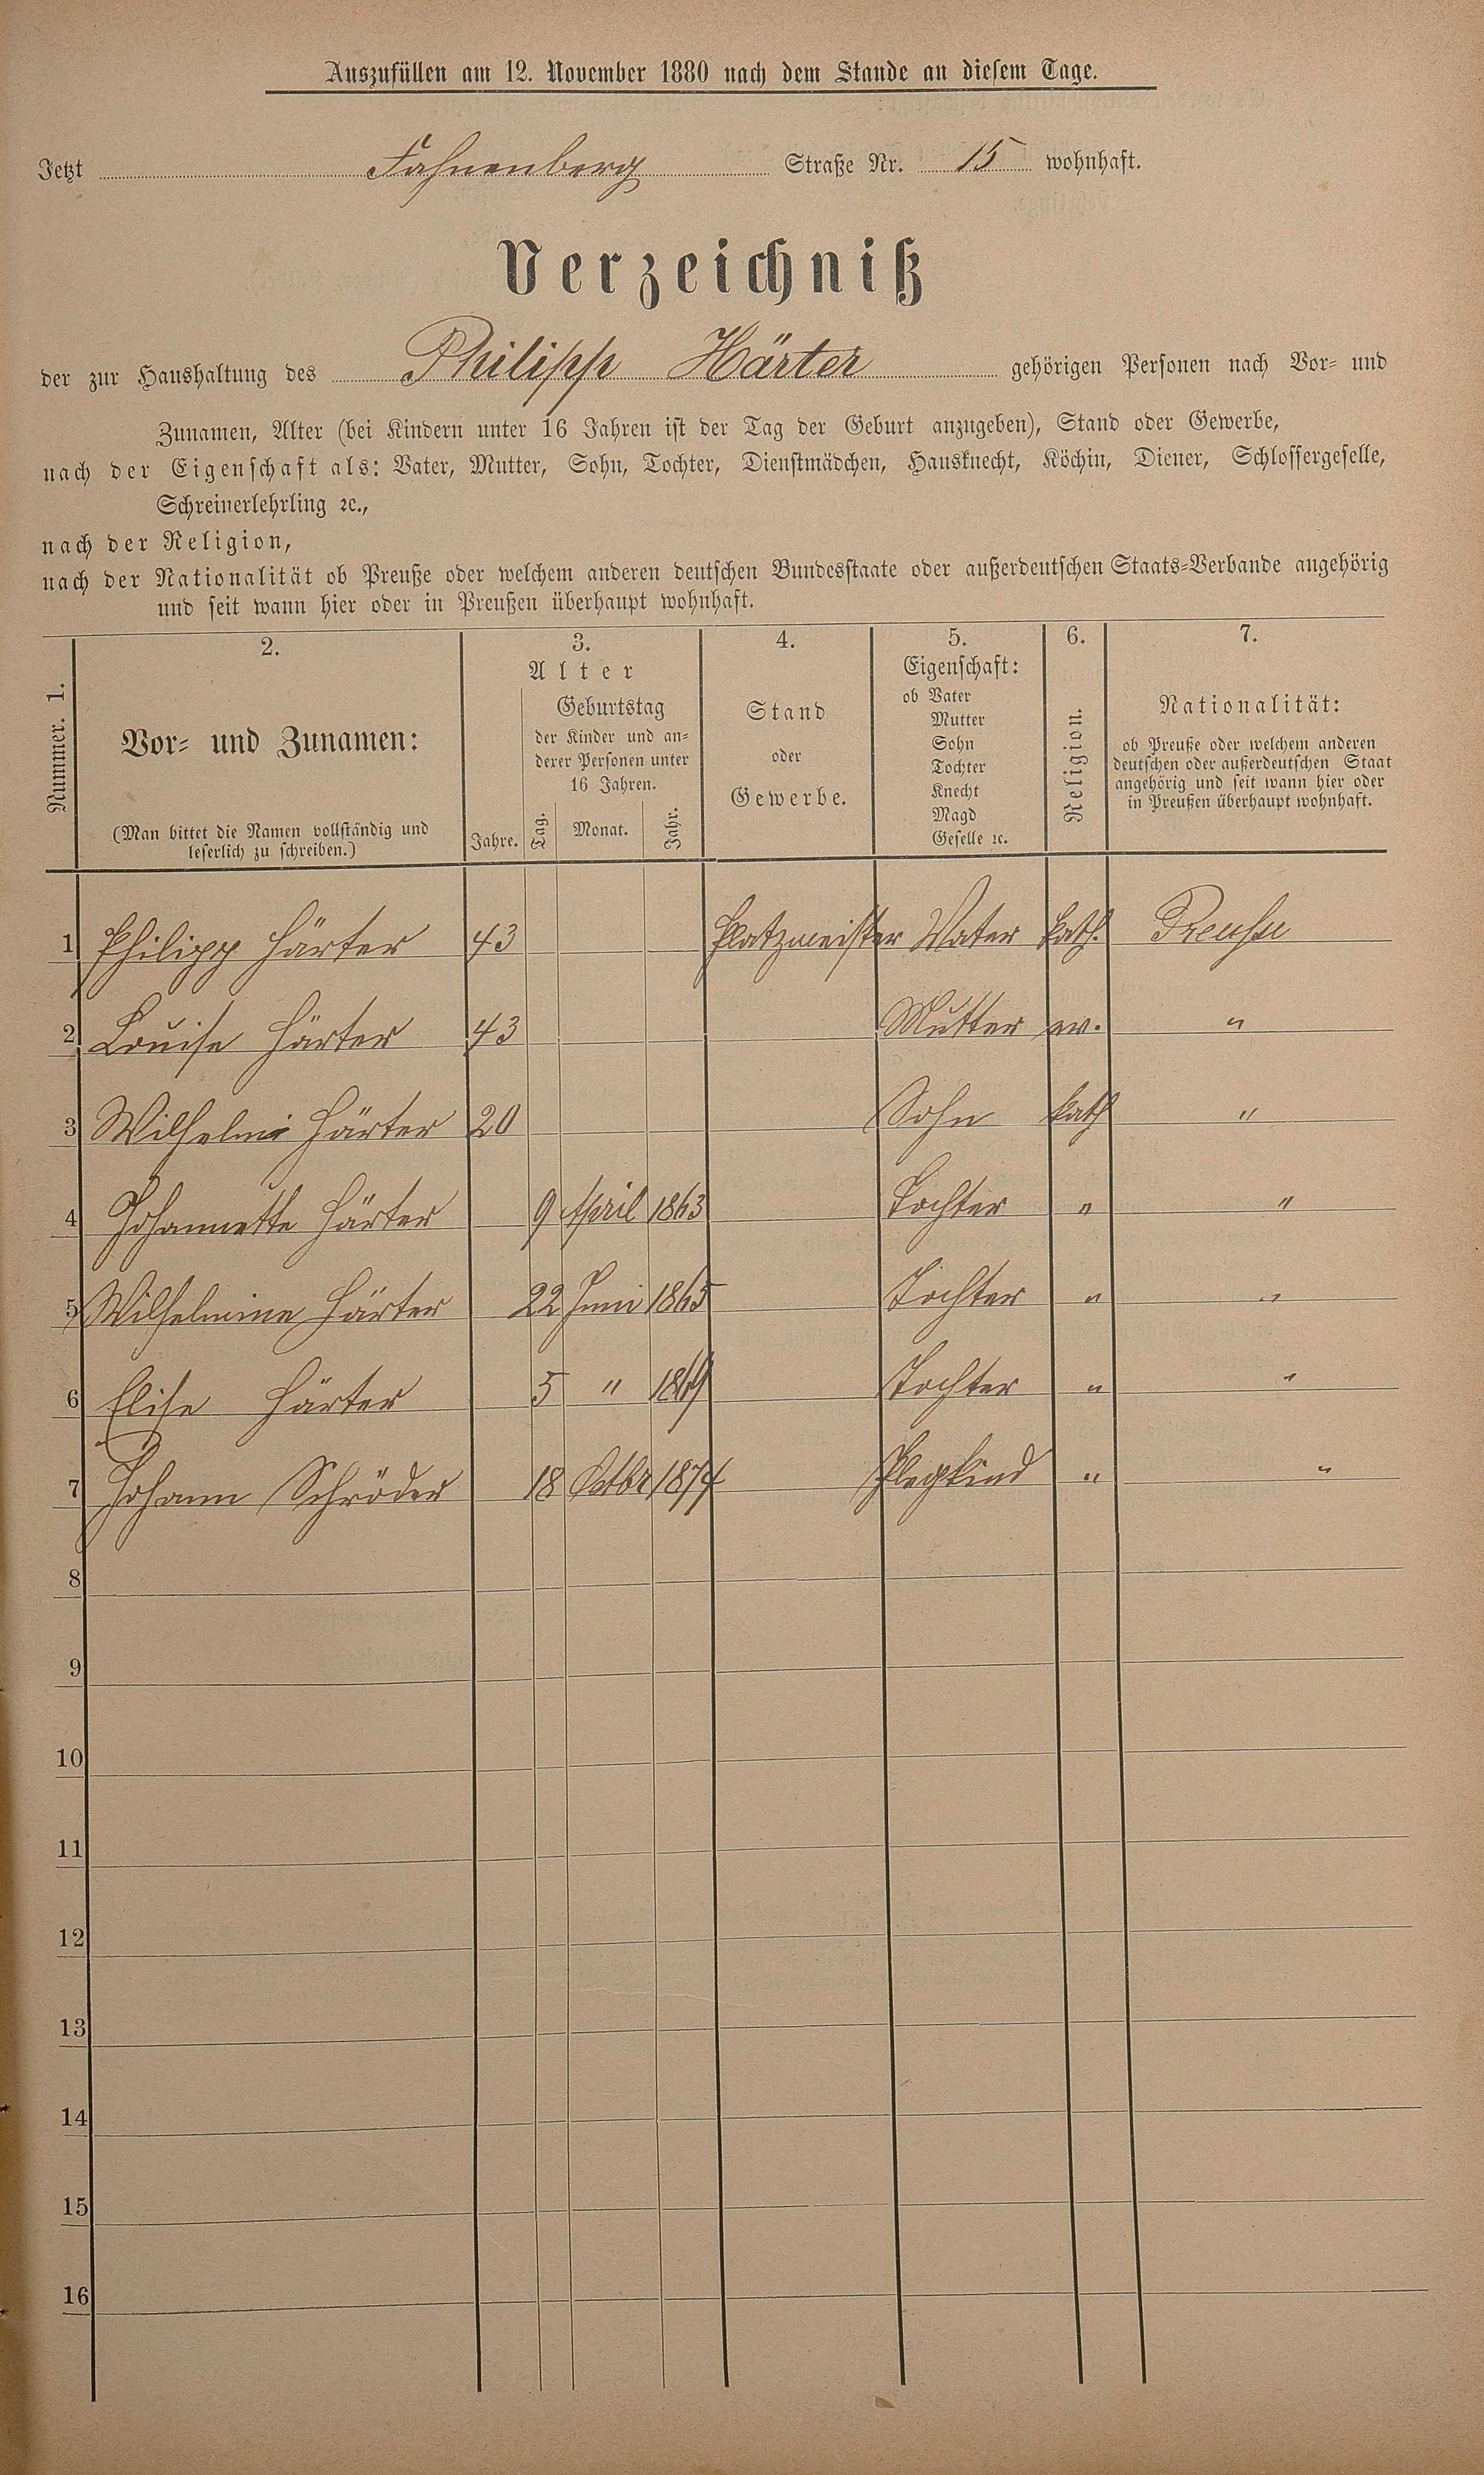 Auszufüllen am 12. November 1880 nach dem Stande an diesem Tage.
Jetzt Fahnenberg Straße Nr. 15 wohnhaft.
Verzeichniß
der zur Haushaltung des Philipp Härter gehörigen Personen nach Vor- und
Zunamen, Alter (bei Kindern unter 16 Jahren ist der Tag der Geburt anzugeben), Stand oder Gewerbe,
nach der Eigenschaft als: Vater, Mutter, Sohn, Tochter, Dienstmädchen, Hausknecht, Köchin, Diener, Schlossergeselle,
Schreinerlehrling ꝛc.,
nach der Religion,
nach der Nationalität ob Preuße oder welchem anderen deutschen Bundesstaate oder außerdeutschen Staats-Verbande angehörig
und seit wann hier oder in Preußen überhaupt wohnhaft.
Nummer. 1.
2.
Vor- und Zunamen:
(Man bittet die Namen vollständig und
leserlich zu schreiben.)
3.
Alter
Jahre.
Geburtstag
der Kinder und an-
derer Personen unter
16 Jahren.
Tag. Monat. Jahr.
4.
Stand
oder
Gewerbe.
5.
Eigenschaft:
ob Vater
Mutter
Sohn
Tochter
Knecht
Magd
Geselle ꝛc.
6.
Religion.
7.
Nationalität:
ob Preuße oder welchem anderen
deutschen oder außerdeutschen Staat
angehörig und seit wann hier oder
in Preußen überhaupt wohnhaft.
1 Philipp Härter 43 Platzmeister Vater kath. Preuße
2 Louise Härter 43 Mutter ev. "
3 Wilhelm Härter 20 Sohn kath "
4 Johannette Härter 9 April 1863 Tochter " "
5 Wilhelmine Härter 22 Juni 1865 Tochter " "
6 Elise Härter 5 " 1869 Tochter " "
7 Johann Schröder 18 Octbr 1874 Plegkind " "
8
9
10
11
12
13
14
15
16